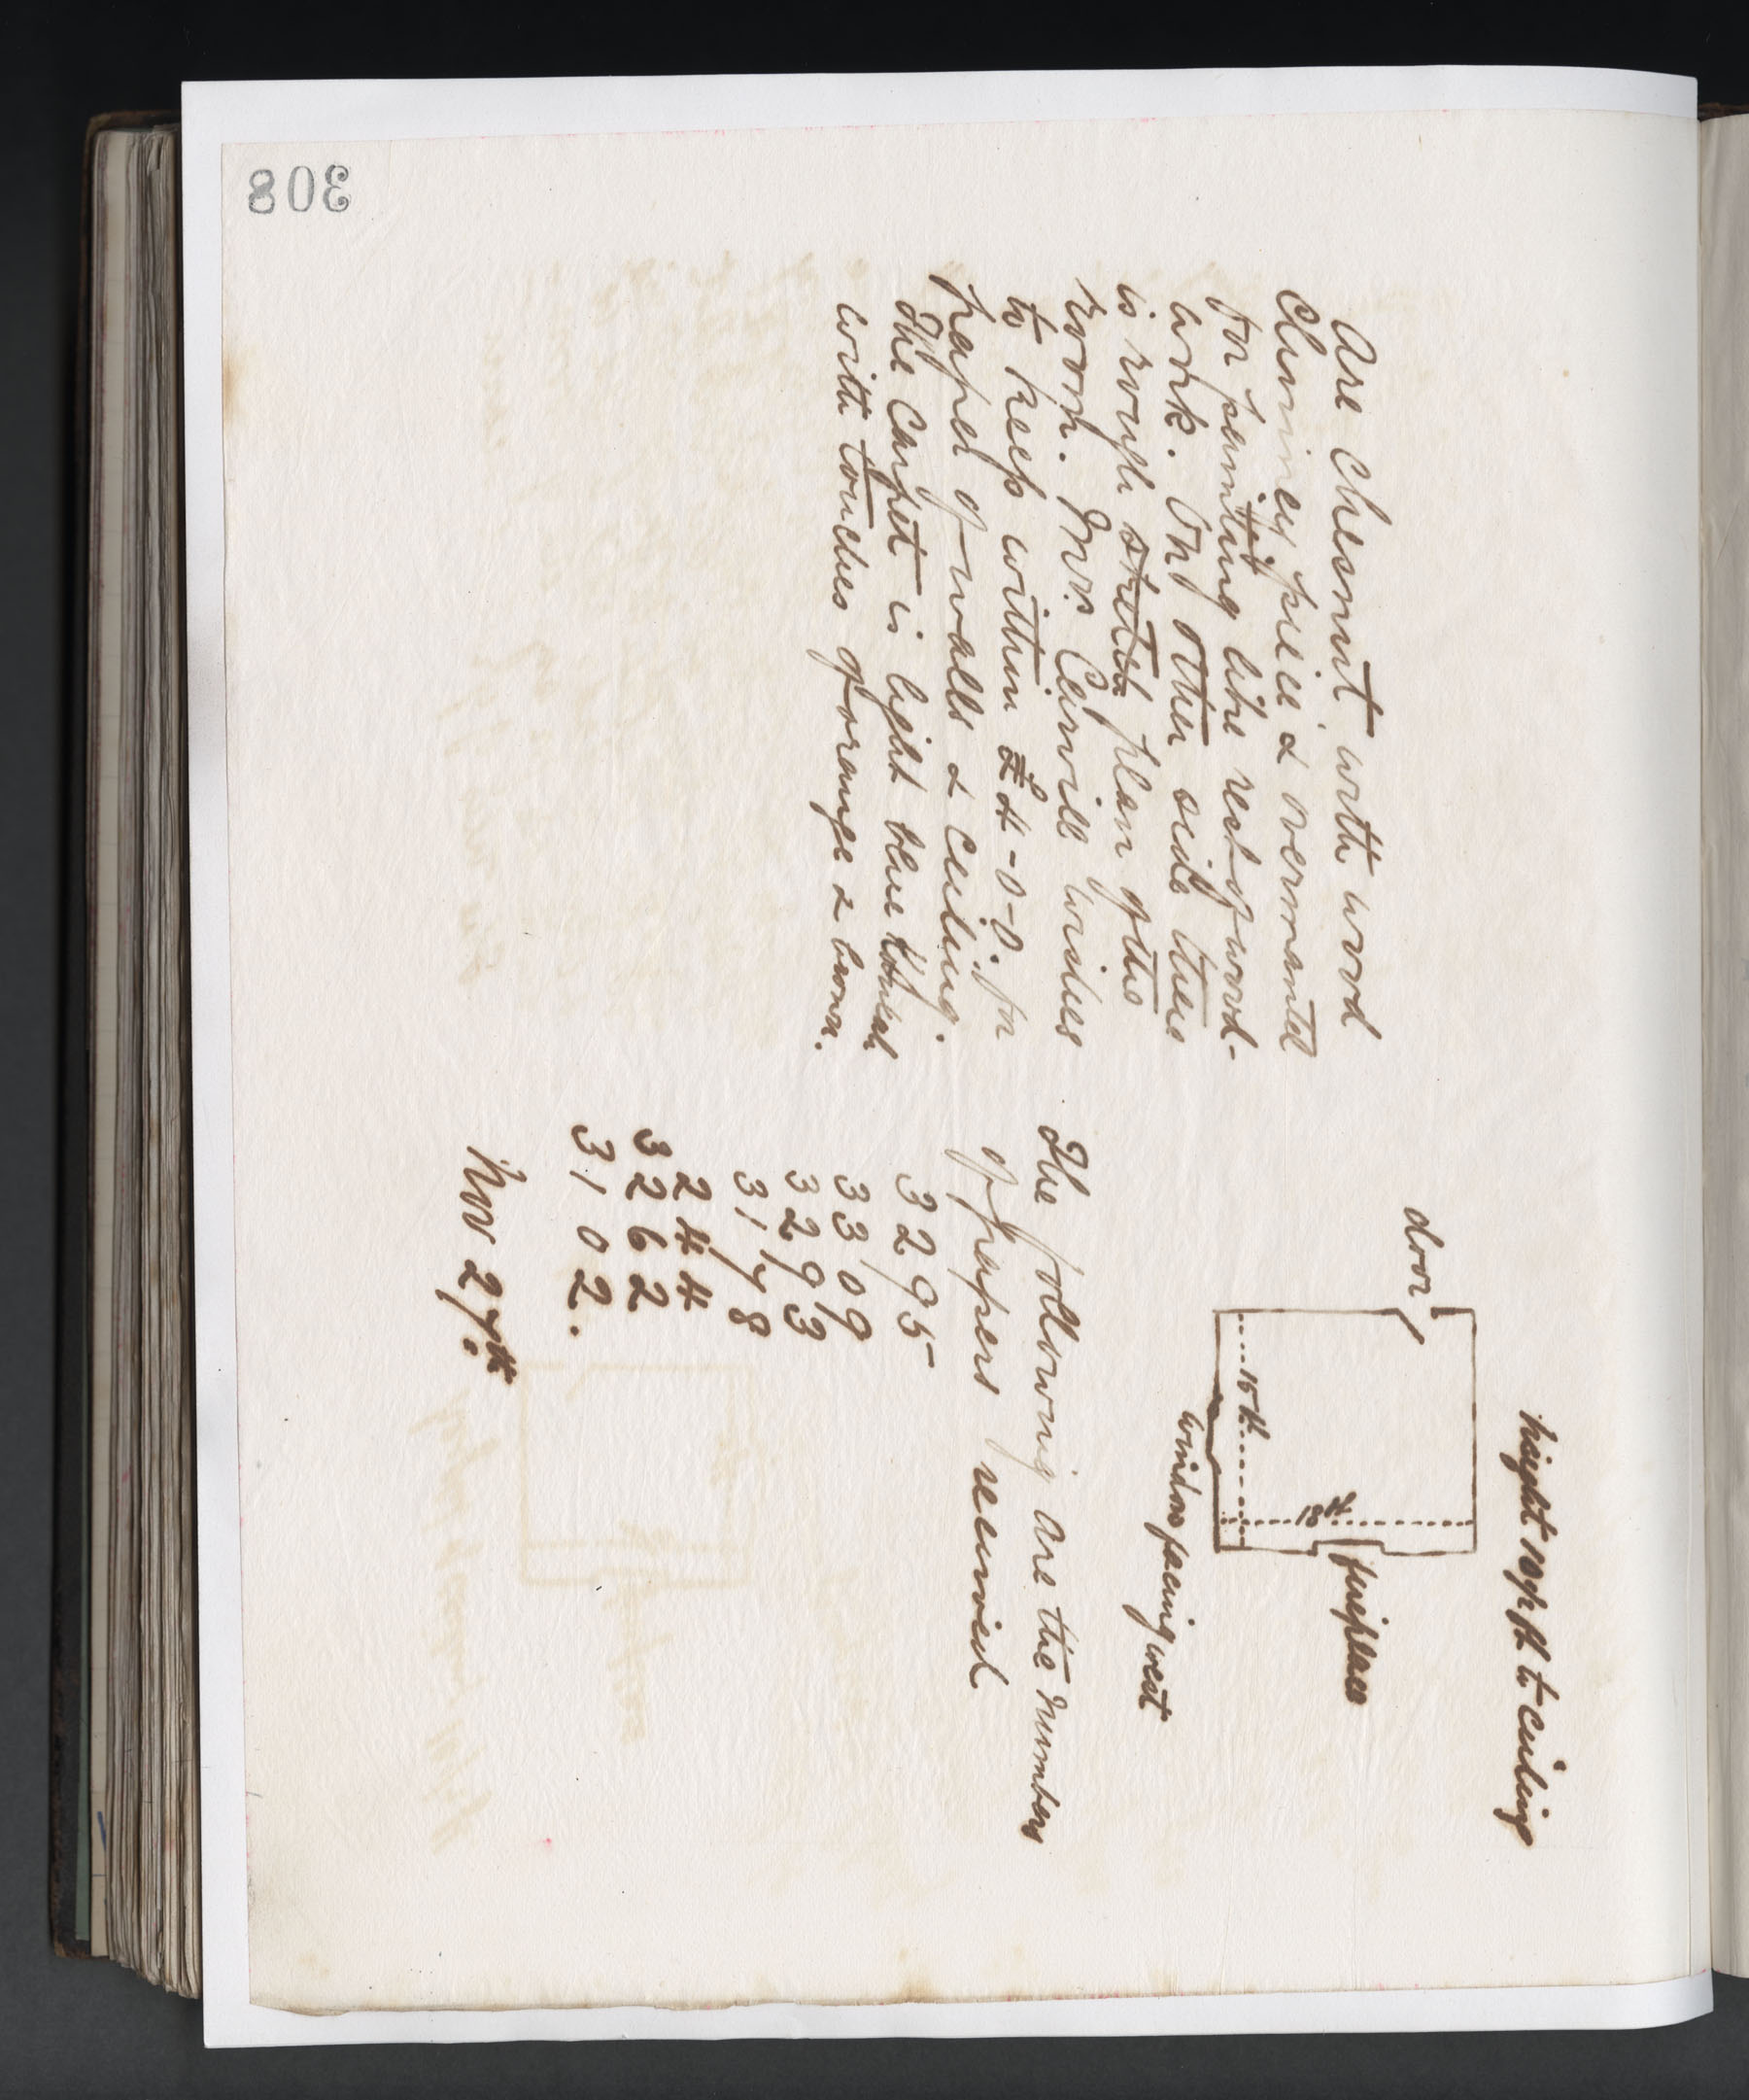 308
Are Chesnut with wood
Chimney piece & overmantel
for painting like rest of wood-
work. On other side there
is rough sketch plan of the
room. Mrs. wishes
to keep within £4-0-0. for
paper of walls & ceiling.
The Carpet is light blue
with touches of orange & brown.
height 10 ft to ceiling
door
fireplace
18 ft
15 ft
window facing west
The following are the numbers
of papers received
3295
3309
3293
3178
244
3262
3102.
Nov 27th.